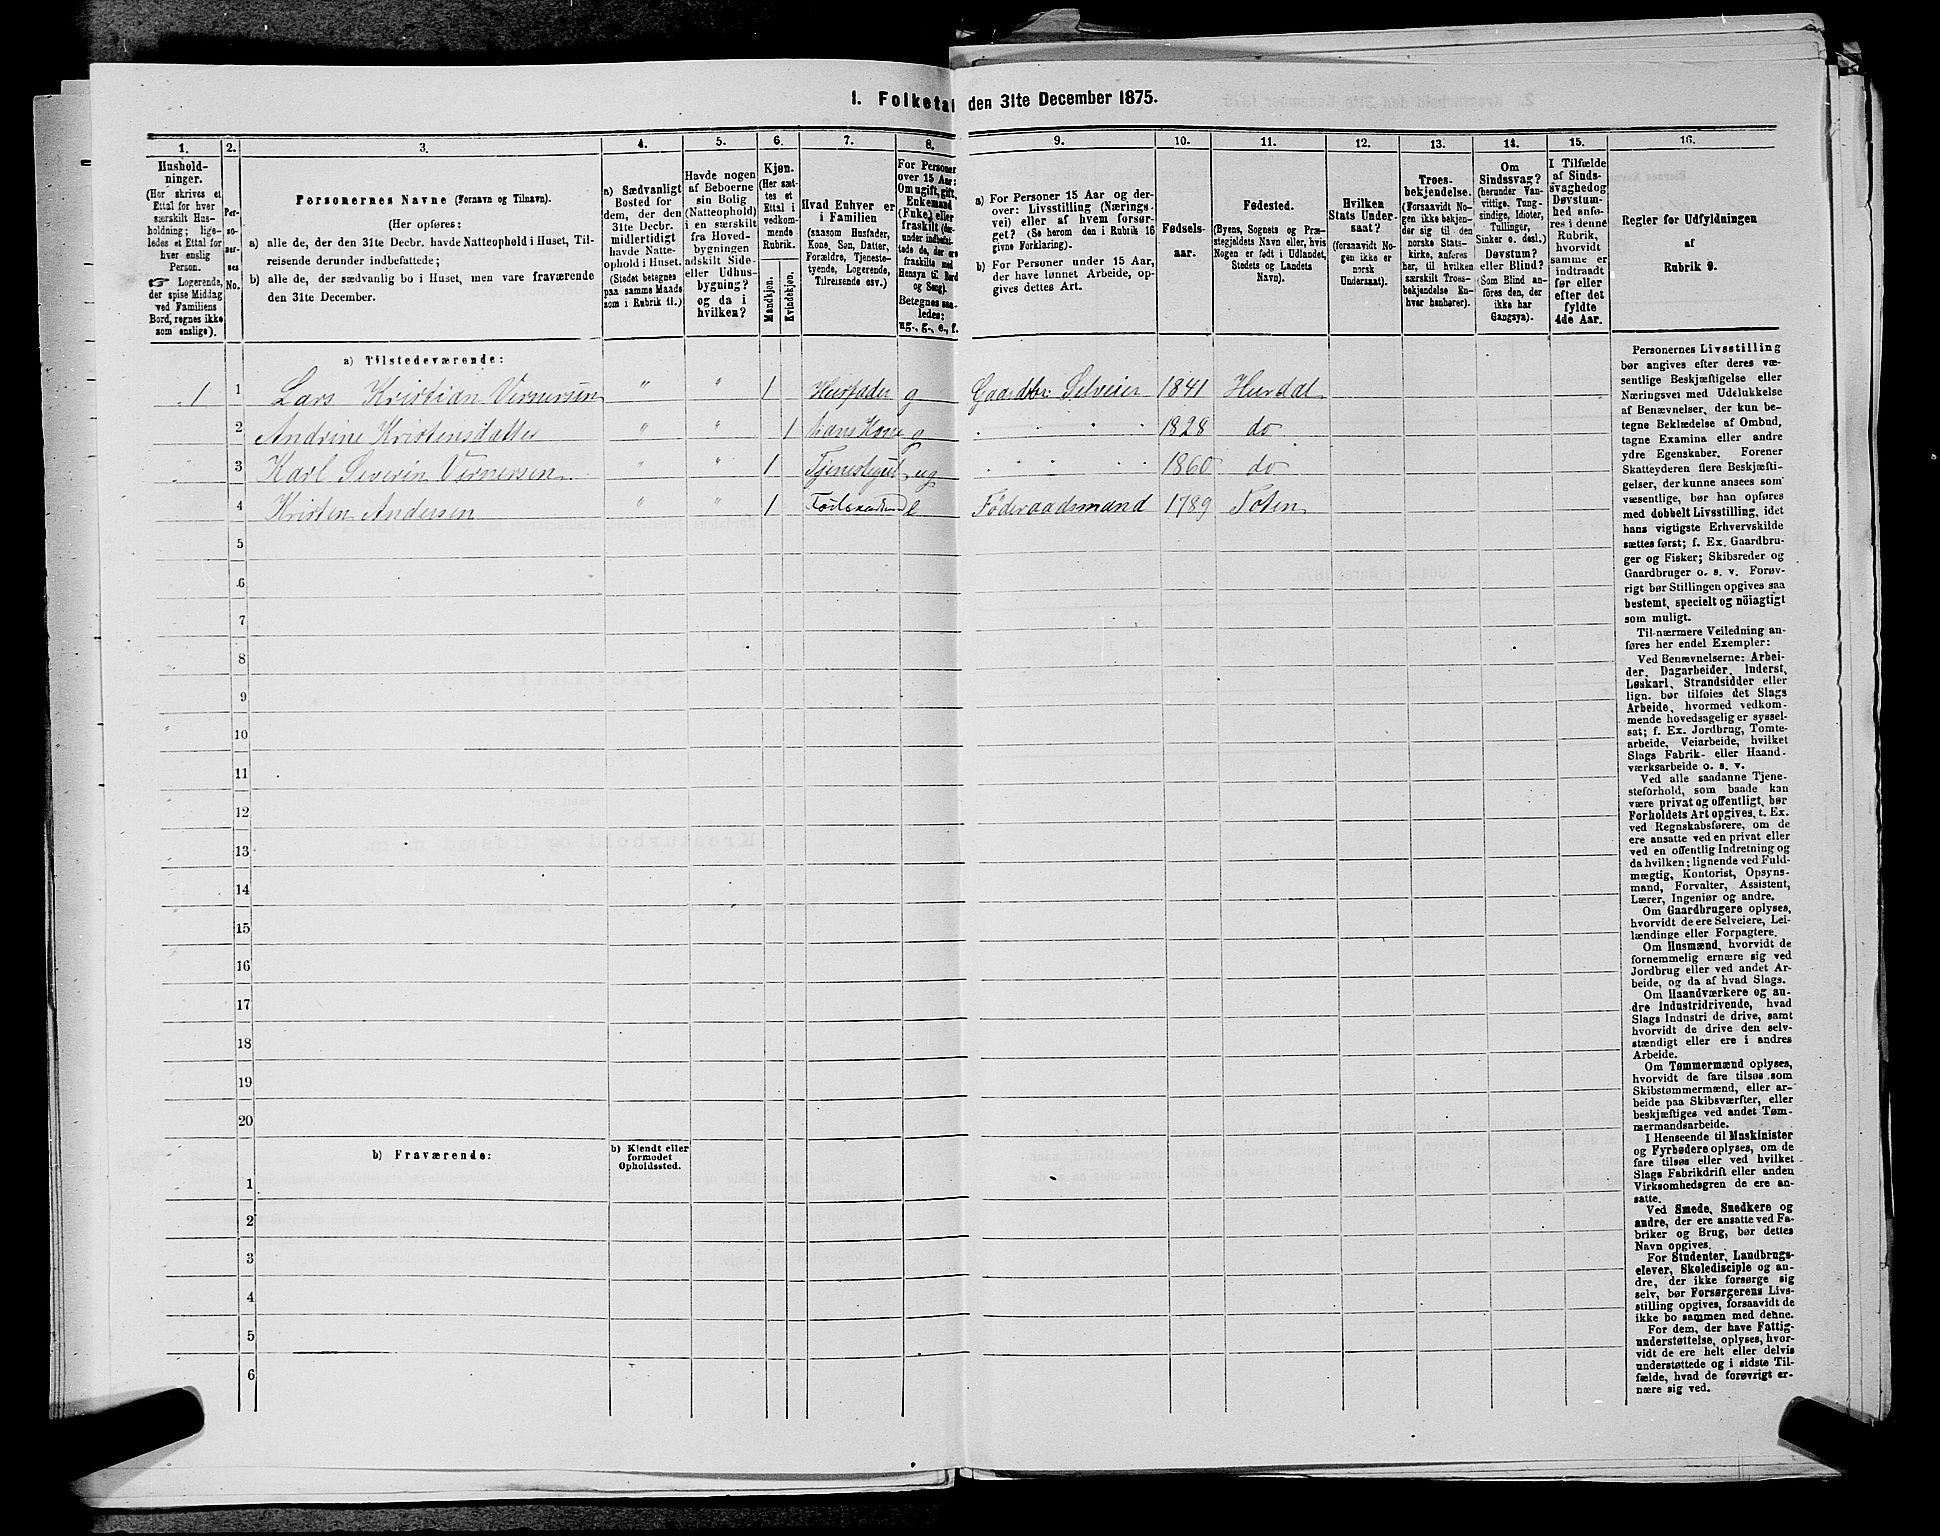 1. Folketal den 31te December 1875.
1.
Hushold-
ninger.
(Her skrives et
Ettal for hver
særskilt Hus-
holdning; lige-
ledes et Ettal for
hver enslig
Person.
☞ Logerende,
der spise Middag
ved Familiens
Bord, regnes ikke
som enslige).
2.
Per-
so-
ner-
nes
No.
3.
Personernes Navne (Fornavn og Tilnavn).
(Her opføres:
a) alle de, der den 31te Decbr. havde Natteophold i Huset, Til-
reisende derunder indbefattede;
b) alle de, der sædvanlig bo i Huset, men vare fraværende
den 31te December.
4.
a) Sædvanligt
Bosted for
dem, der den
31te Decbr.
midlertidigt
havde Natte-
ophold i Huset.
(Stedet betegnes
paa samme Maade
som i Rubrik 11.)
5.
Havde nogen
af Beboerne
sin Bolig
(Natteophold)
i en særskilt
fra Hoved-
bygningen
adskilt Side-
eller Udhus-
bygning?
og da i
hvilken?
6.
Kjøn.
(Her sæt-
tes et
Ettal i
vedkom-
mende
Rubrik.
Mandkjøn.
Kvindekjøn.
7.
Hvad Enhver er
i Familien
(saasom Husfader,
Kone, Søn, Datter,
Forældre, Tjeneste-
tyende, Logerende,
Tilreisende osv.)
8.
For Personer
over 15 Aar:
Om ugift, gift,
Enkemand
(Enke) eller
fraskilt (der-
under indbefat-
tede de, der ere
fraskilte med
Hensyn til Bord
og Seng).
Betegnes saa-
ledes:
ug., g., e., f.
9.
a) For Personer 15 Aar og der-
over: Livsstilling (Nærings-
vei) eller af hvem forsør-
get? (Se herom den i Rubrik 16
givne Forklaring).
b) For Personer under 15 Aar,
der have lønnet Arbeide, op-
gives dettes Art.
10.
Fødsels-
aar.
11.
Fødested.
(Byens, Sognets og Præ-
stegjeldets Navn eller, hvis
Nogen er født i Udlandet,
Stedets og Landets
Navn).
12.
Hvilken
Stats Under-
saat?
(forsaavidt No-
gen ikke er
norsk
Undersaat).
13.
Troes-
bekjendelse.
(Forsaavidt No-
gen ikke bekjen-
der sig til den
norske Stats-
kirke, anføres
her, til hvilken
særskilt Troes-
bekjendelse En-
hver henhører).
14.
Om
Sindssvag?
(herunder Van-
vittige, Tung-
sindige, Idioter,
Tullinger,
Sinker o. desl.).
Døvstum?
eller Blind?
(Som Blind an-
føres den, der
ikke har
Gangsyn).
15.
I Tilfælde
af Sinds-
svaghed og
Døvstum-
hed anfø-
res i denne
Rubrik,
hvorvidt
samme er
indtraadt
før eller
efter det
fyldte
4de Aar.
16.
Regler for Udfyldningen
af
Rubrik 9.
a) Tilstedeværende:
1 1 Lars Kristian Vernersen " " 1 Husfader g Gaardbr. Selveier 1841 Hurdal
2 Andrine Kristensdatter " " 1 hans Kone g 1828 do
3 Karl Severin Vernersen " " 1 Tjenestegut ug 1860 do
4 Kristen Andersen " " 1 e Föderaadsmand 1789 Toten
5
6
7
8
9
10
11
12
13
14
15
16
17
18
19
20
b) Fraværende:
b) Kjendt eller
formodet
Opholdssted.
1
2
3
4
5
6
Personernes Livsstilling
bør angives efter deres væ-
sentlige Beskjæftigelse eller
Næringsvei med Udelukkelse
af Benævnelser, der kun be-
tegne Beklædelse af Ombud,
tagne Examina eller andre
ydre Egenskaber. Forener
Skatteyderen flere Beskjæfti-
gelser, der kunne ansees som
væsentlige, bør han opføres
med dobbelt Livsstilling, idet
hans vigtigste Erhvervskilde
sættes først; f. Ex. Gaardbru-
ger og Fisker; Skibsreder og
Gaardbruger o. s. v. Forøv-
rigt bør Stillingen opgives saa
bestemt, specielt og nöiagtigt
som muligt.
Til nærmere Veiledning an-
føres her endel Exempler:
Ved Benævnelserne: Arbei-
der, Dagarbeider, Inderst,
Løskarl, Strandsidder eller
lign. bør tilføies det Slags
Arbeide, hvormed vedkom-
mende hovedsagelig er syssel-
sat; f. Ex. Jordbrug, Tomte-
arbeide, Veiarbeide, hvilket
Slags Fabrik- eller Haand-
værksarbeide o. s. v.
Ved alle saadanne Tjene-
steforhold, som baade kan
være privat og offentligt, bør
Forholdets Art opgives, t. Ex.
ved Regnskabsførere, om de
ere ansatte ved en privat eller
ved en offentlig Indretning og
da hvilken; lignende ved Fuld-
mægtig, Kontorist, Opsyns-
mand, Forvalter, Assistent,
Lærer, Ingeniør og andre.
Om Gaardbrugere oplyses,
hvorvidt de ere Selveiere, Lei-
lændinge eller Forpagtere.
Om Husmænd, hvorvidt de
fornemmelig ernære sig ved
Jordbrug eller ved andet Ar-
beide, og da af hvad Slags.
Om Haandværkere og an-
dre Industridrivende, hvad
Slags Industri de drive, samt
hvorvidt de drive den selv-
stændigt eller ere i andres
Arbeide.
Om Tømmermænd oplyses,
hvorvidt de fare tilsøs som
Skibstømmermænd, eller ar-
beide paa Skibsværfter, eller
beskjæftiges ved andet Tøm-
mermandsarbeide.
I Henseende til Maskinister
og Fyrbødere oplyses, om de
fare tilsøs eller ved hvilket
Slags Fabrikdrift eller anden
Virksomhedsgren de ere an-
satte.
Ved Smede, Snedkere og
andre, der ere ansatte ved Fa-
briker og Brug, bør dettes
Navn opgives.
For Studenter, Landbrugs-
elever, Skoledisciple og an-
dre, der ikke forsørge sig
selv, bør Forsørgerens Livs-
stilling opgives, forsaavidt de
ikke bo sammen med denne.
For dem, der have Fattig-
understøttelse, oplyses, hvor-
vidt de ere helt eller delvis
understøttede og i sidste Til-
fælde, hvad de forøvrigt er-
nære sig ved.